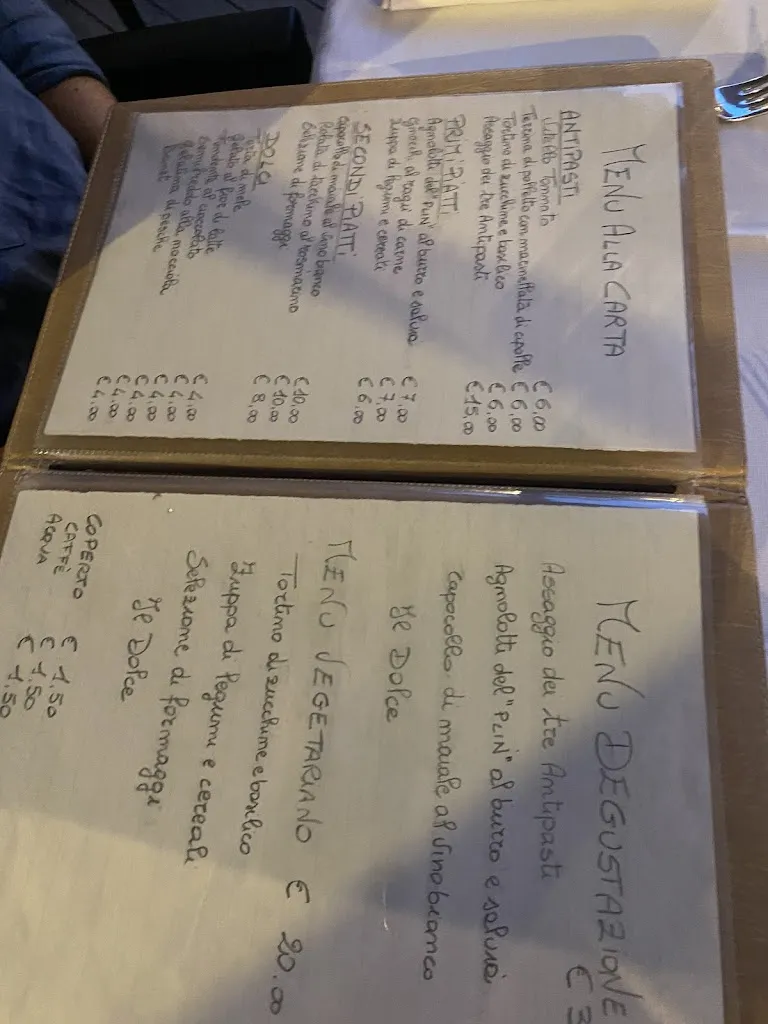 MENU ALLA CARTA
ANTIPASTI
Vitello Tonnato € 6,00
Terrina di polpetto con marmellata di cipolle € 6,00
Tortino di zucchine e basilico € 6,00
Assaggio dei tre Antipasti € 15,00
PRIMI PIATTI
Agnolotti del "PLIN" al burro e salvia € 7,00
Gnocchi al ragù di carne € 7,00
Zuppa di legumi e cereali € 6,00
SECONDI PIATTI
Capocollo di maiale al vino bianco € 10,00
Rotolo di tacchino al rosmarino € 10,00
Selezione di formaggi € 8,00
DOLCI
Torta di mele € 4,00
Gelato al fior di latte € 4,00
Fondente al cioccolato € 4,00
Semifreddo alla nocciola € 4,00
Gelatina di pesche € 4,00
Bunet € 4,00
MENU DEGUSTAZIONE € 3
Assaggio dei tre Antipasti
Agnolotti del "PLIN" al burro e salvia
Capocollo di maiale al vino bianco
Il Dolce
MENU VEGETARIANO € 20.00
Tortino di zucchine e basilico
Zuppa di legumi e cereali
Selezione di formaggi
Il Dolce
COPERTO € 1.50
CAFFÈ € 1.50
ACQUA € 1.50